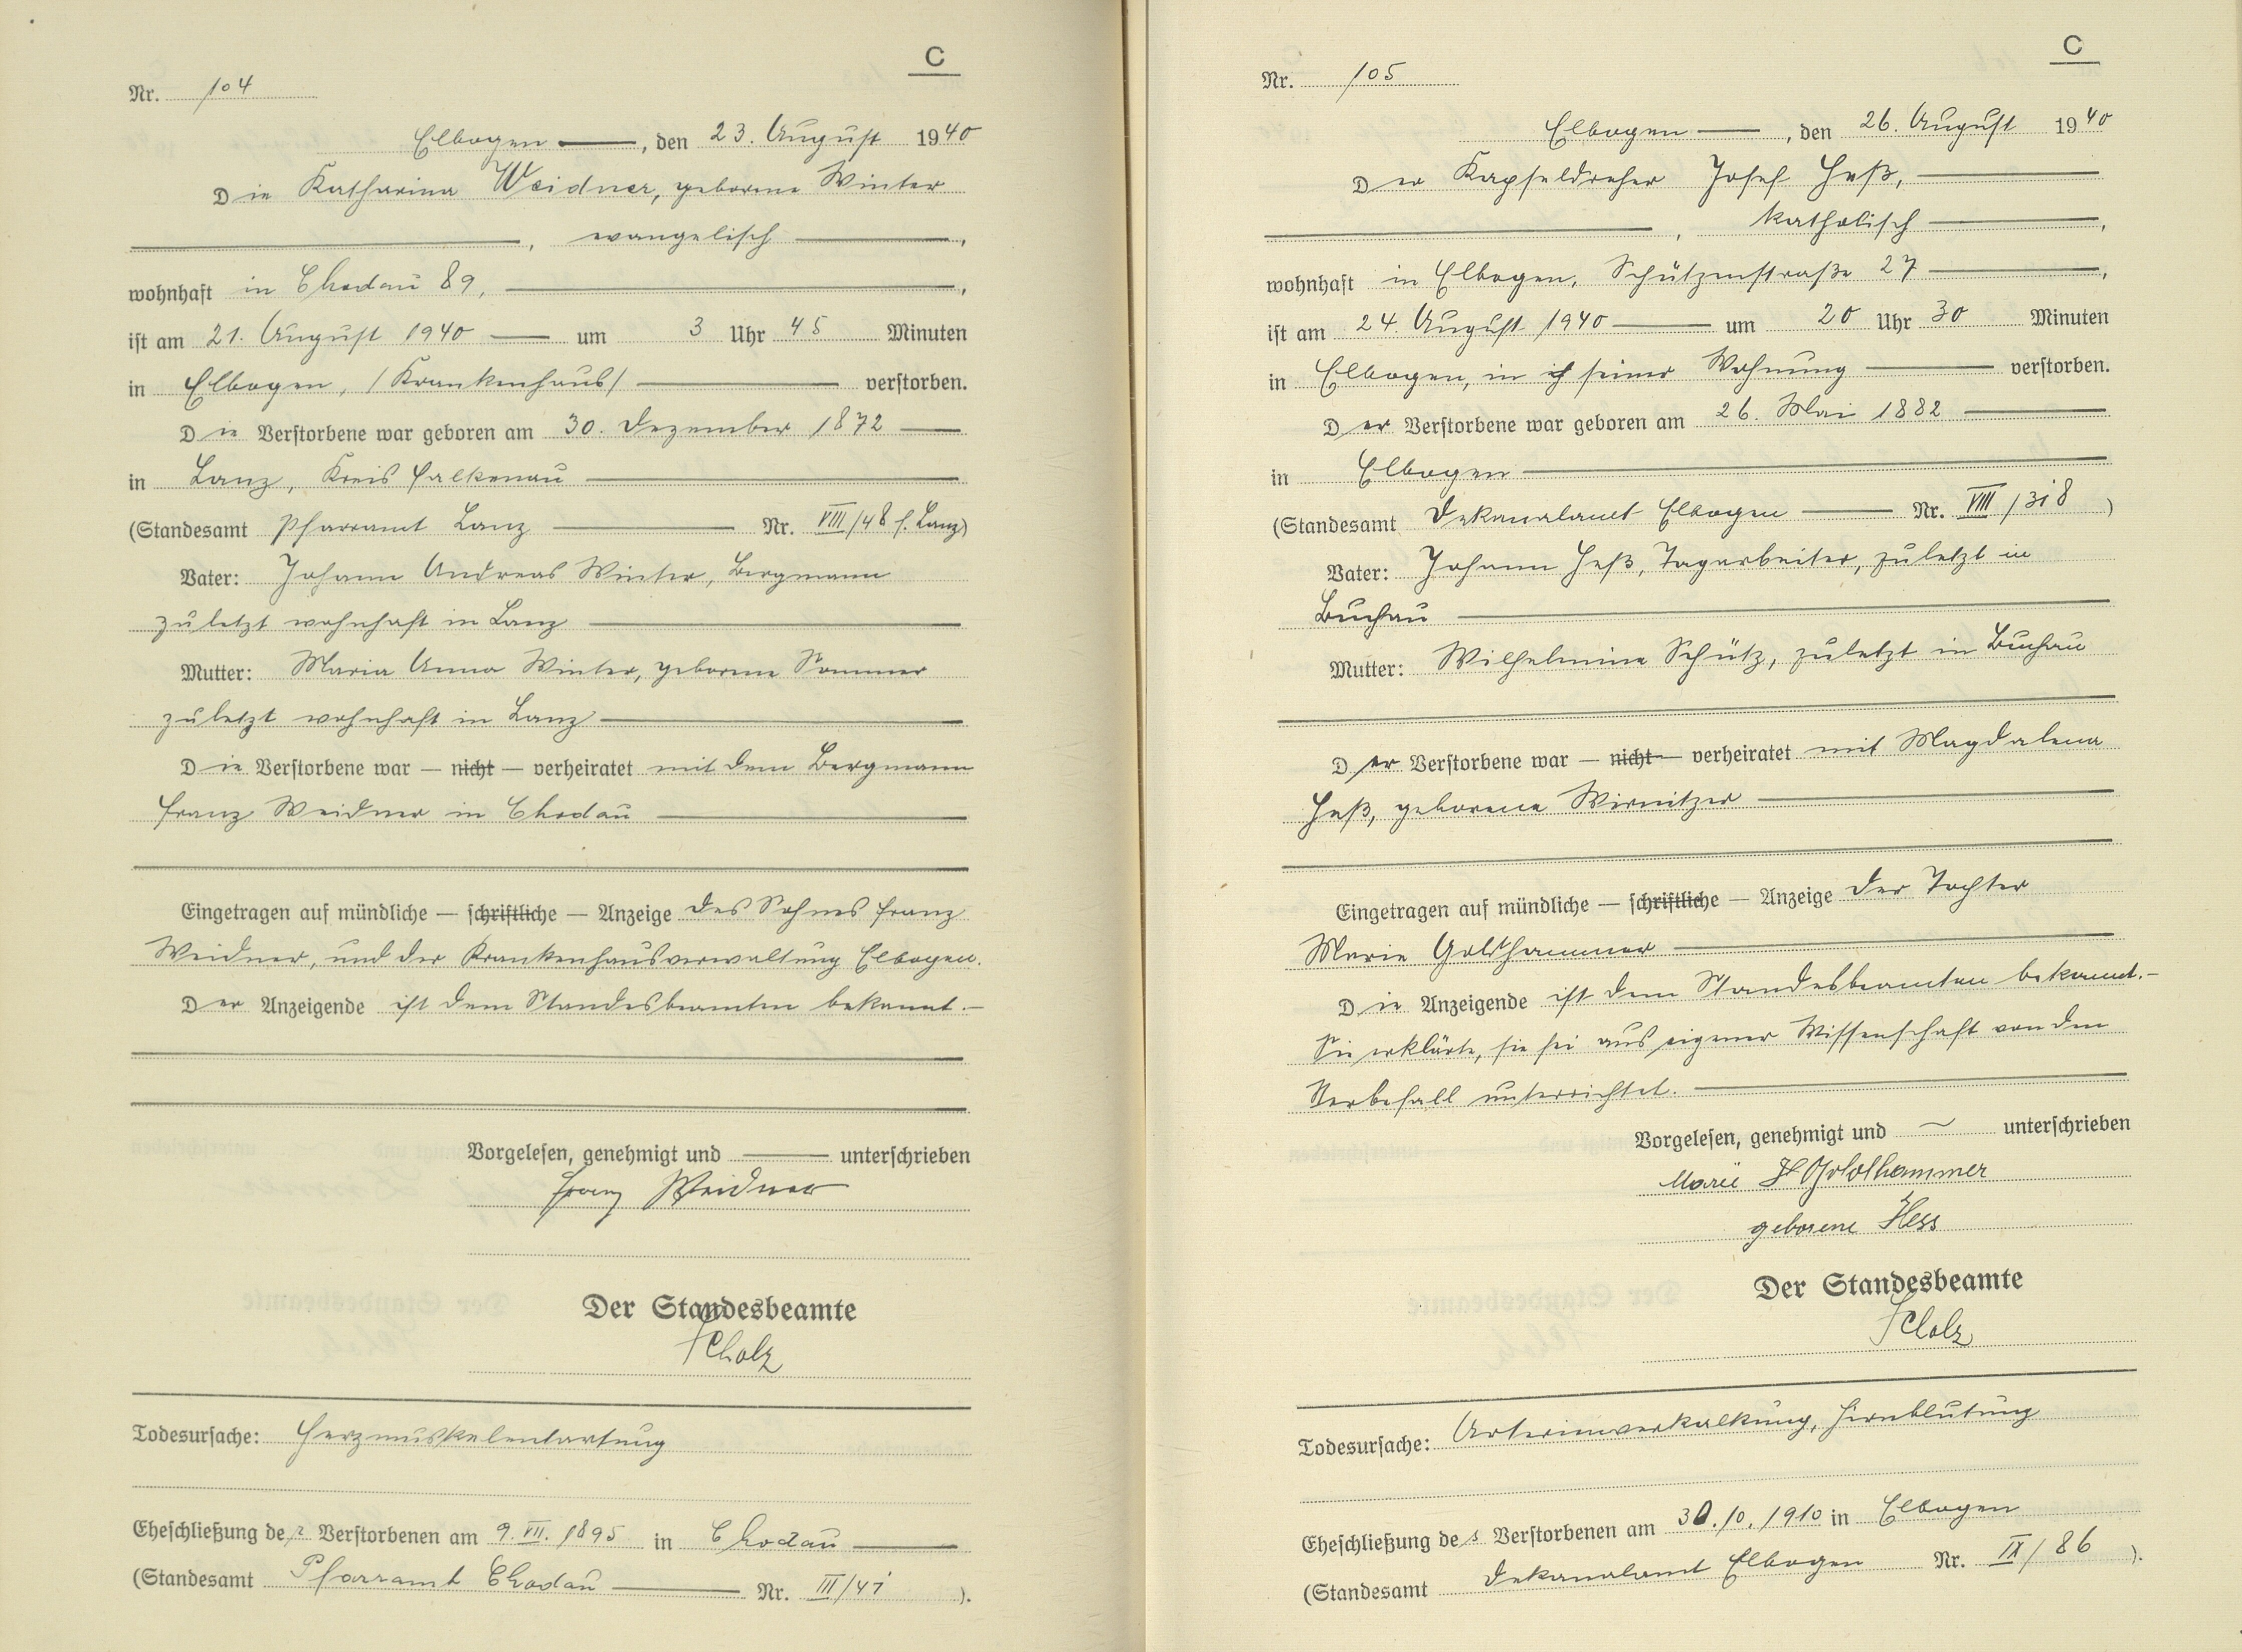 C
Nr. 104
Elbogen —, den 23. August 1940
Die Katharina Weidner, geborene Winter
—, evangelisch —,
wohnhaft in Chodau 89, —,
ist am 21. August 1940 — um 3 Uhr 45 Minuten
in Elbogen, /Krankenhaus/ — verstorben.
Die Verstorbene war geboren am 30. Dezember 1872 —
in Lanz, Kreis Falkenau —
(Standesamt Pfarramt Lanz — Nr. VIII/48 f. Lanz)
Vater: Johann Andreas Winter, Bergmann
zuletzt wohnhaft in Lanz —
Mutter: Maria Anna Winter, geborene Sommer
zuletzt wohnhaft in Lanz —
Die Verstorbene war — nicht — verheiratet mit dem Bergmann
Franz Weidner in Chodau —
Eingetragen auf mündliche — schriftliche — Anzeige des Sohnes Franz
Weidner, und der Krankenhausverwaltung Elbogen.
Der Anzeigende ist dem Standesbeamten bekannt.—
Vorgelesen, genehmigt und — unterschrieben
Franz Weidner
Der Standesbeamte
Scholz
Todesursache: Herzmuskelentartung
Eheschließung der Verstorbenen am 9. VII. 1895 in Chodau —
(Standesamt Pfarramt Chodau — Nr. III/41 ).
C
Nr. 105
Elbogen —, den 26. August 1940
Der Kapseldreher Josef Heß, —
—, katholisch —,
wohnhaft in Elbogen, Schützenstraße 27 —,
ist am 24. August 1940 — um 20 Uhr 30 Minuten
in Elbogen, in seiner Wohnung — verstorben.
Der Verstorbene war geboren am 26. Mai 1882 —
in Elbogen —
(Standesamt Dekanalamt Elbogen — Nr. VIII/318 )
Vater: Johann Heß, Tagarbeiter, zuletzt in
Buchau —
Mutter: Wilhelmine Schütz, zuletzt in Buchau
Der Verstorbene war — nicht — verheiratet mit Magdalena
Heß, geborene Wirnitzer —
Eingetragen auf mündliche — schriftliche — Anzeige der Tochter
Marie Goldhammer —
Die Anzeigende ist dem Standesbeamten bekannt.—
Sie erklärte, sie sei aus eigener Wissenschaft von dem
Sterbefall unterrichtet. —
Vorgelesen, genehmigt und — unterschrieben
Marie Goldhammer
geborene Hess
Der Standesbeamte
Scholz
Todesursache: Arterienverkalkung, Hirnblutung
Eheschließung des Verstorbenen am 30./10. 1910 in Elbogen
(Standesamt Dekanalamt Elbogen Nr. IX/86 ).